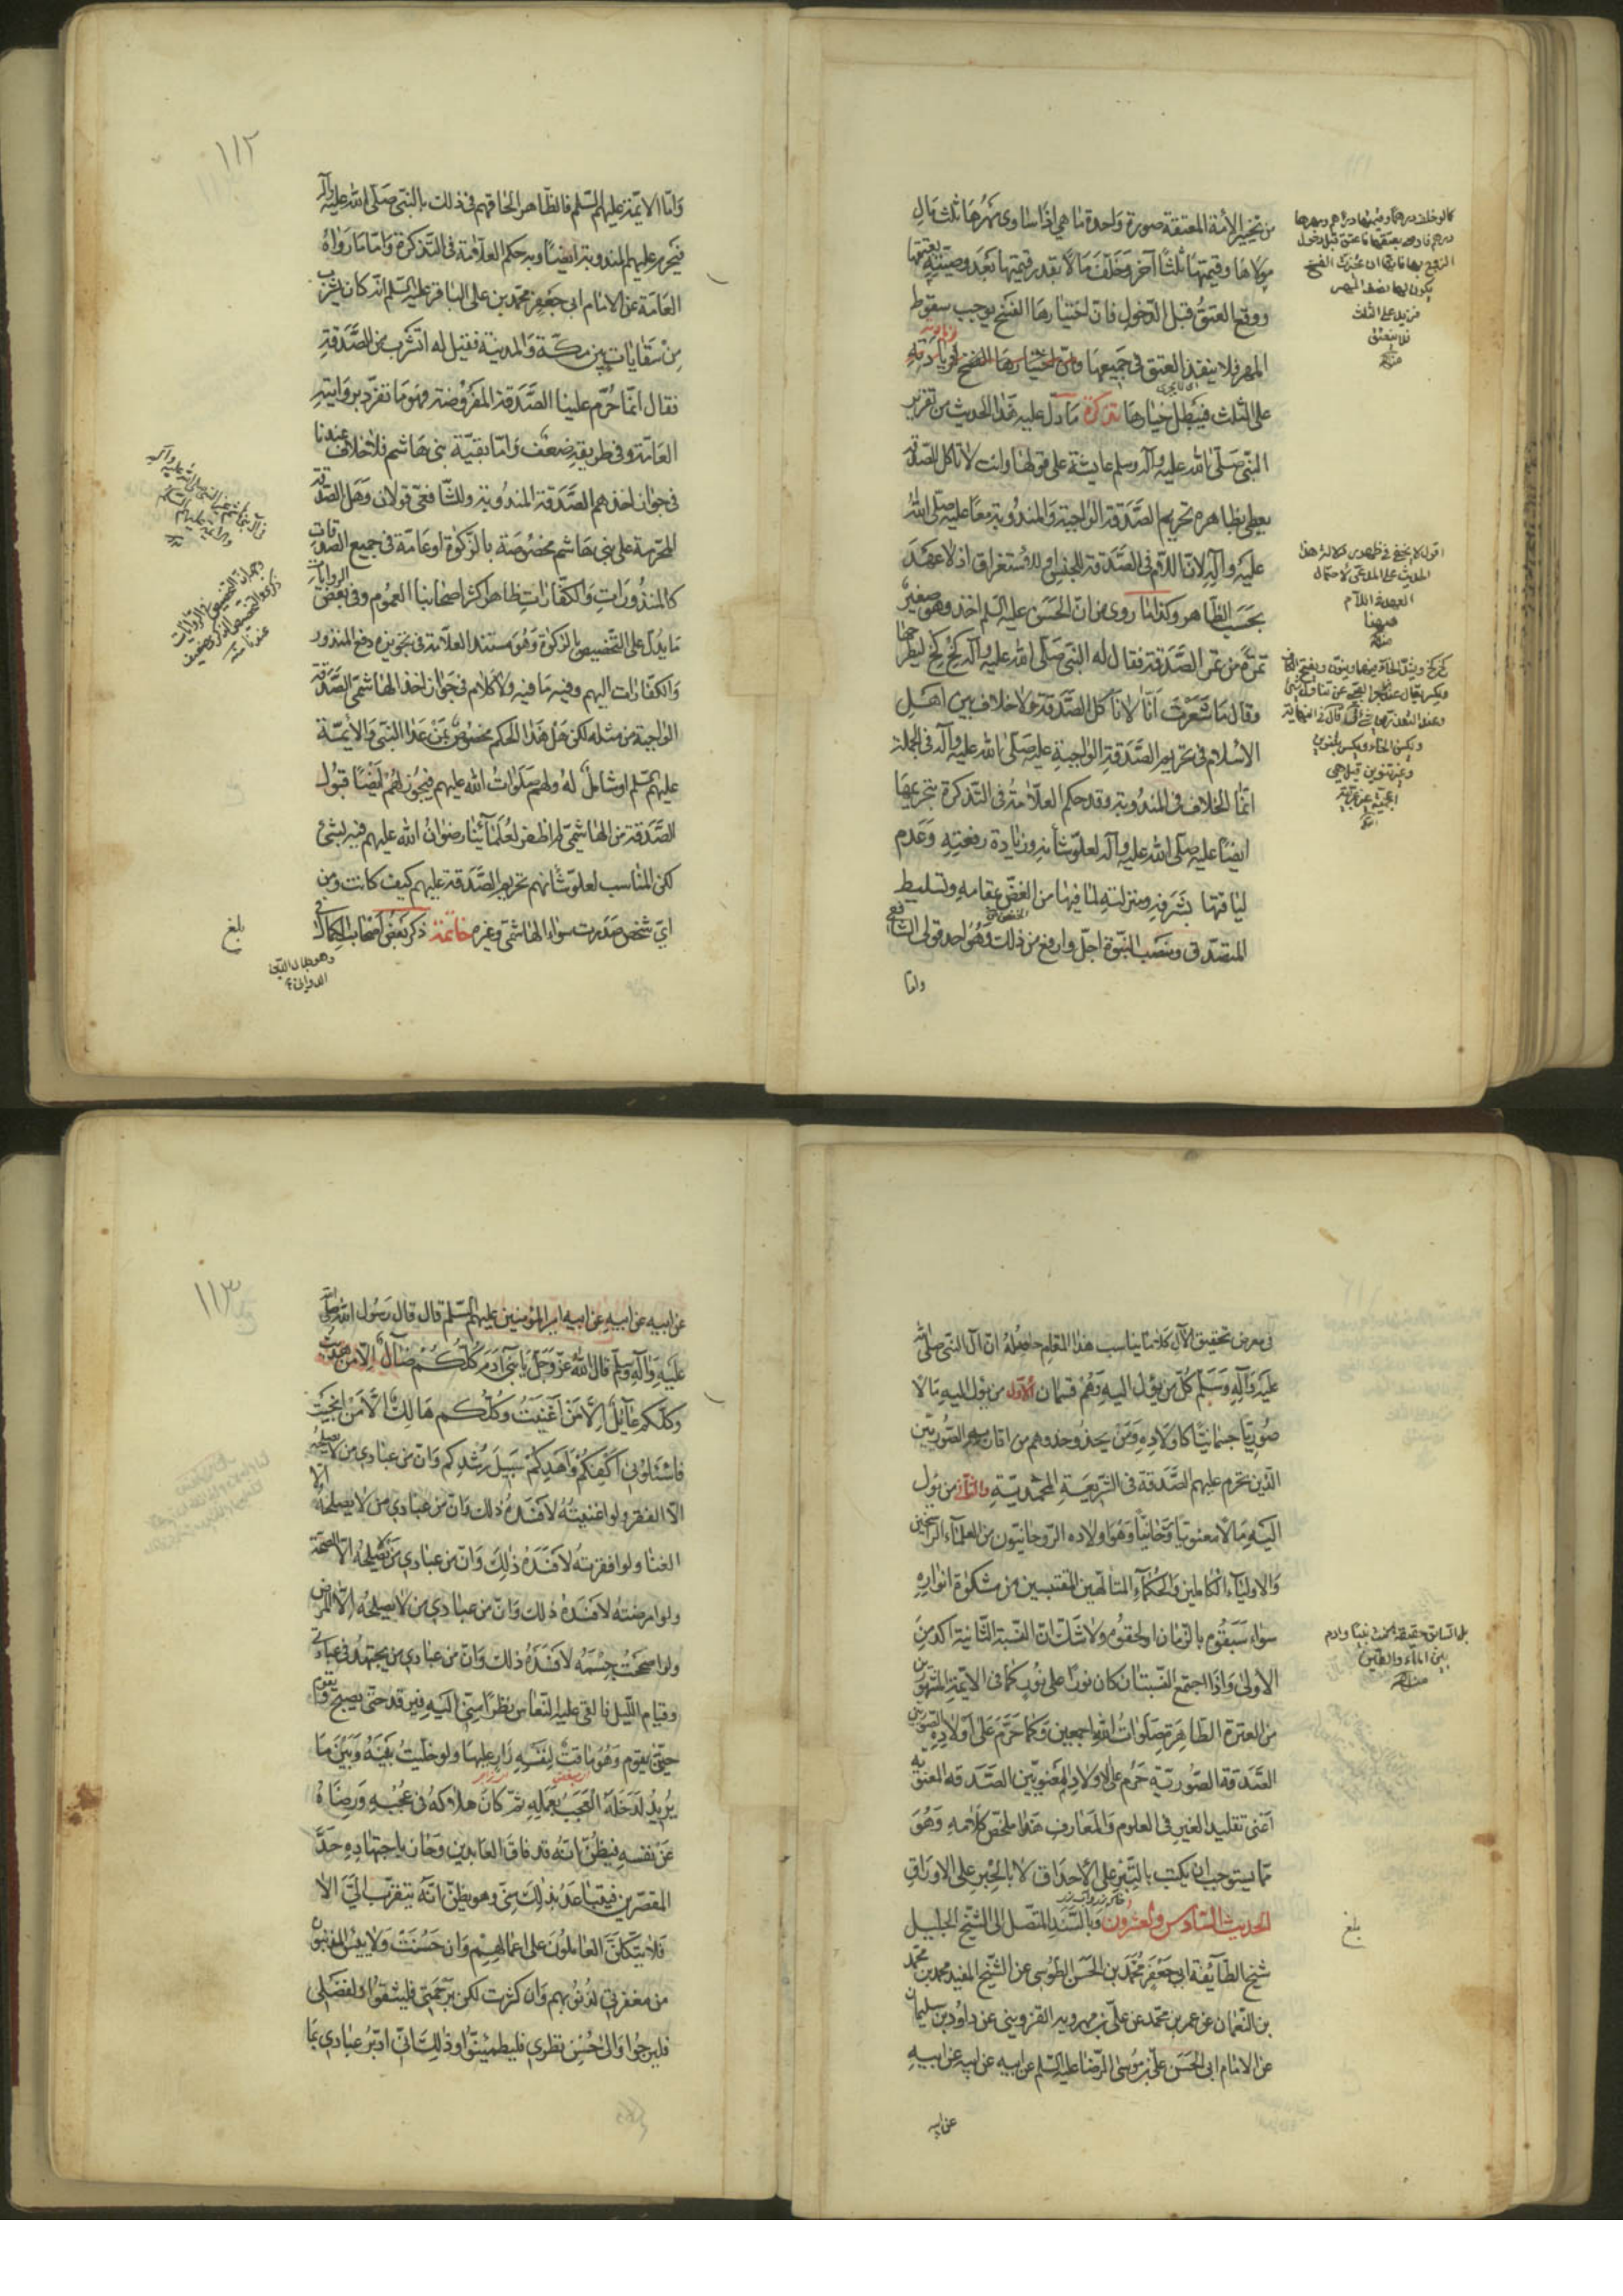 من تخيير الأمة المعتقة صورة واحدة ما هي اذا ساوى مهرها ثلث مال
مولاها وقيمتها ثلثا آخر وخلف مالا بقدر قيمتها بعد وصيته بعتقها
ووقع العتق قبل الدخول فان اختيارها الفسخ يوجب سقوط
المهر فلا ينفذ العتق في جميعها
على الثلث فيبطل خيارها تذكرة ما دل عليه هذا الحديث من تقرير
النبي صلى الله عليه وآله وسلم عايشة على قولها وانت لا تأكل الصدقة
يعطي بظاهره تحريم الصدقة الواجبة والمندوبة معا عليه صلى الله
عليه وآله لان اللام في الصدقة للجنس او للاستغراق اذ لا عهد
بحسب الظاهر وكذا ما روى من ان الحسن عليه السلم اخذ وهو صغير
تمرة من تمر الصدقة فقال له النبي صلى الله عليه وآله كخ كخ ليطرحها
وقال ما شعرت انا لا نأكل الصدقة ولا خلاف بين اهل
الاسلام في تحريم الصدقة الواجبة عليه صلى الله عليه وآله في الجملة
انما الخلاف في المندوبة وقد حكم العلامة في التذكرة بتحريمها
ايضا عليه صلى الله عليه وآله لعلو شأنه وزيادة رفعته وعدم
لياقتها بشرفه ومنزلته لما فيها من الغض بمقامه وتسليط
المتصدق ومنصب النبوة اجل وارفع من ذلك وهو احد قولي الشافعي
واما
اقول لا يخفى في ظهور دلالة هذا
الحديث على المدعى لاحتمال
العهد في اللام
فيهما
منه
واما الائمة عليهم السلم فالظاهر الحاقهم في ذلك بالنبي صلى الله عليه وآله
فيحرم عليهم المندوبة ايضا وبه حكم العلامة في التذكرة واما ما رواه
العامة عن الامام ابي جعفر محمد بن علي الباقر عليه السلم انه كان يشرب
من سقايات بين مكة والمدينة فقيل له اتشرب من الصدقة
فقال انما حرم علينا الصدقة المفروضة فهو ما تفرد بروايته
العامة وفي طريقه ضعف واما بقية بني هاشم فلا خلاف عندنا
في جواز اخذهم الصدقة المندوبة وللشافعي قولان وهل الصدقة
المحرمة على بني هاشم مخصوصة بالزكوة او عامة في جميع الصدقات
كالمنذورات والكفارات ظاهر اكثر اصحابنا العموم وفي بعض الروايات
ما يدل على التخصيص بالزكوة وهو مستند العلامة في تجويزه دفع المنذور
والكفارات اليهم وفيه ما فيه ولا كلام في جواز اخذ الهاشمي الصدقة
الواجبة من مثله لكن هل هذا الحكم مخصوص بمن عدا النبي والائمة
عليهم السلم او شامل له ولهم صلوات الله عليهم فيجوز لهم ايضا قبول
الصدقة من الهاشمي لم اظفر لعلمائنا رضوان الله عليهم فيه بشئ
لكن المناسب لعلو شأنهم تحريم الصدقة عليهم كيف كانت ومن
اي شخص صدرت سواء الهاشمي وغيره خاتمة ذكر بعض اصحاب الكمال في
وهو جلال الدين
الدواني
بلغ
١١٢
في معرض تحقيق الآل كلاما يناسب هذا المقام حاصله ان آل النبي صلى الله
عليه وآله وسلم كل من يؤل اليه وهم قسمان الاول من يؤل اليه مآلا
صوريا جسمانيا كاولاده ومن يحذو حذوهم من اقاربه الصوريين
الذين تحرم عليهم الصدقة في الشريعة المحمدية والثاني من يؤل
اليه مآلا معنويا روحانيا وهو اولاده الروحانيون من العلماء الراسخين
والاولياء الكاملين والحكماء المتألهين المقتبسين من مشكوة انواره
سواء سبقوه بالزمان او لحقوه ولا شك ان النسبة الثانية اكد من
الاولى واذا اجتمع النسبتان كان نورا على نور كما في الائمة المشهورين
من العترة الطاهرة صلوات الله اجمعين وكما حرم على اولاده الصوريين
الصدقة الصورية حرم على اولاده المعنويين الصدقة المعنوية
اعني تقليد الغير في العلوم والمعارف هذا ملخص كلامه وهو
مما يستوجب ان يكتب بالتبر على الاحداق لا بالحبر على الاوراق
الحديث السادس والعشرون وبالسند المتصل الى الشيخ الجليل
شيخ الطائفة ابي جعفر محمد بن الحسن الطوسي عن الشيخ المفيد محمد بن محمد
بن النعمان عن عمر بن محمد عن علي بن مهرويه القزويني عن داود بن سليمان
عن الامام ابي الحسن علي بن موسى الرضا عليه السلم عن ابيه عن ابيه عن ابيه
عن ابيه
بلغ
عن ابيه عن ابيه عن ابيه امير المؤمنين عليهم السلم قال قال رسول الله صلى الله
عليه وآله وسلم قال الله عز وجل يا بني آدم كلكم ضال الا من هديت
وكلكم عائل الا من اغنيت وكلكم هالك الا من انجيت
فاسئلوني اكفكم واهدكم سبيل رشدكم وان من عبادي من لا يصلحه
الا الفقر ولو اغنيته لافسده ذلك وان من عبادي من لا يصلحه الا
الغنا ولو افقرته لافسده ذلك وان من عبادي من لا يصلحه الا الصحة
ولو امرضته لافسده ذلك وان من عبادي من لا يصلحه الا المرض
ولو اصححت جسمه لافسده ذلك وان من عبادي من يجتهد في عبادتي
وقيام الليل فالقي عليه النعاس نظرا مني اليه فيرقد حتى يصبح ويقوم
حين يقوم وهو ماقت لنفسه زار عليها ولو خليت بينه وبين ما
يريد لدخله العجب بعمله ثم كان هلاكه في عجبه ورضاه
عن نفسه فيظن انه قد فاق العابدين وجاز باجتهاده حد
المقصرين فيتباعد بذلك مني وهو يظن انه يتقرب الي الا
فلا يتكلن العاملون على اعمالهم وان حسنت ولا ييئس المذنبون
من مغفرتي لذنوبهم وان كثرت لكن برحمتي فليثقوا ولفضلي
فليرجوا والى حسن نظري فليطمئنوا وذلك اني ادبر عبادي بما
١١٣